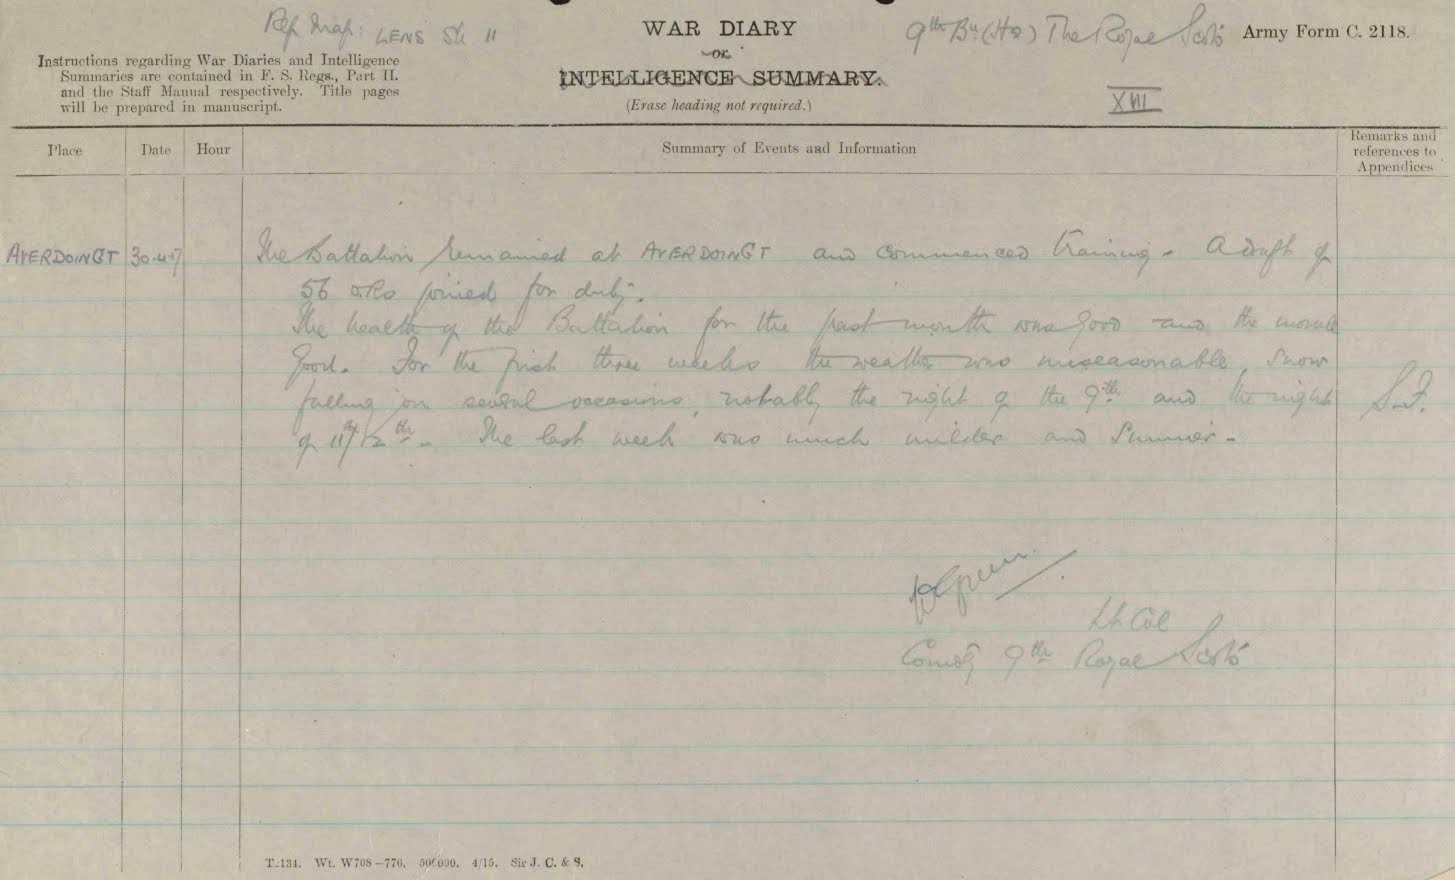 Ref Map: LENS Sh 11
WAR DIARY
or
INTELLIGENCE SUMMARY.
(Erase heading not required.)
9th Bn (HRS) The Royal Scots
Army Form C. 2118.
XIII
Instructions regarding War Diaries and Intelligence
Summaries are contained in F. S. Regs., Part II.
and the Staff Manual respectively. Title pages
will be prepared in manuscript.
Place Date Hour Summary of Events and Information
Remarks and
references to
Appendices
AVERDOINGT 30.4.17 The Battalion remained at AVERDOINGT and commenced training. A draft of
56 ORs joined for duty.
The health of the Battalion for the past month was good and the morale
good. For the first three weeks the weather was unseasonable, snow
falling on several occasions, notably the night of the 9th and the night
of 11th/12th. The last week was much milder and Summier.
S.F.
Lt Col
Comdg 9th Royal Scots
T.134. Wt. W708-776. 500000. 4/15. Sir J. C. & S.